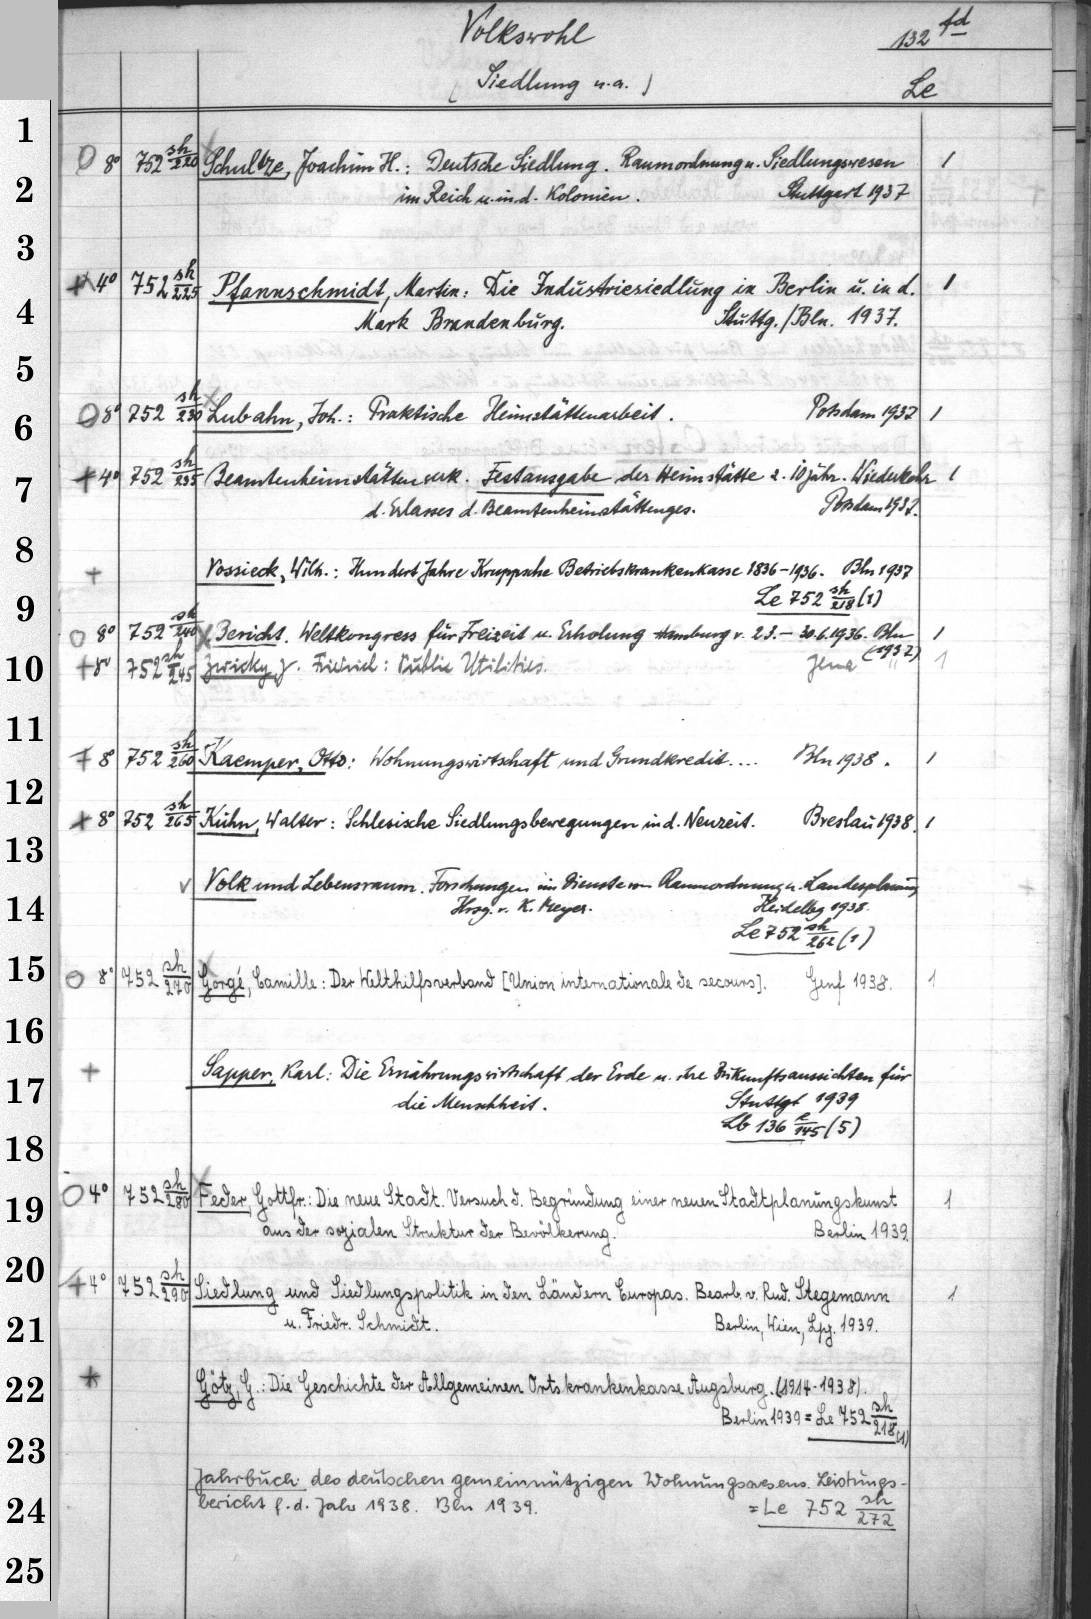 Volkswohl 132 fd
(Siedlung u.a.) Le
1
O 8° 752 sh/220 Schultze, Joachim H.: Deutsche Siedlung. Raumordnung u. Siedlungswesen 1
2
im Reich u. in d. Kolonien. Stuttgart 1937
3
+ 4° 752 sh/225 Pfannschmidt, Martin: Die Industriesiedlung in Berlin u. in d. 1
4
Mark Brandenburg. Stuttg./Bln. 1937.
5
O 8° 752 sh/230 Lubahn, Joh.: Praktische Heimstättenarbeit. Potsdam 1937 1
6
+ 4° 752 sh/235 Beamtenheimstättenwerk. Festausgabe der Heimstätte z. 10jähr. Wiederkehr 1
7
d. Erlasses d. Beamtenheimstättenges. Potsdam 1937.
8
+ Vossieck, Wilh.: Hundert Jahre Kruppsche Betriebskrankenkasse 1836-1936. Bln 1937
9
Le 752 sh/218 (1)
O 8° 752 sh/240 Bericht. Weltkongress für Freizeit u. Erholung Hamburg v. 23.-30.6.1936. Bln 1
(1937)
10
+ 8° 752 sh/245 Zwicky, J. Fridrich: Public Utilities. Jena " 1
11
+ 8° 752 sh/260 Kaemper, Otto: Wohnungswirtschaft und Grundkredit.... Bln 1938. 1
12
+ 8° 752 sh/265 Kuhn, Walter: Schlesische Siedlungsbewegungen in d. Neuzeit. Breslau 1938. 1
13
v Volk und Lebensraum. Forschungen im Dienste von Raumordnung u. Landesplanung
14
Hrsg. v. K. Meyer. Heidelbg 1938.
Le 752 sh/262 (1)
15
O 8° 752 sh/270 Gorgé, Camille: Der Welthilfsverband [Union internationale de secours]. Genf 1938. 1
16
+ Sapper, Karl: Die Ernährungswirtschaft der Erde u. ihre Zukunftsaussichten für
17
die Menschheit. Stuttgt 1939
Lb 136 e/145 (5)
18
O 4° 752 sh/280 Feder, Gottfr.: Die neue Stadt. Versuch d. Begründung einer neuen Stadtplanungskunst 1
19
aus der sozialen Struktur der Bevölkerung. Berlin 1939
20
+ 4° 752 sh/290 Siedlung und Siedlungspolitik in den Ländern Europas. Bearb. v. Rud. Stegemann 1
21
u. Friedr. Schmidt. Berlin, Wien, Lpz. 1939.
22
+ Götz, G.: Die Geschichte der Allgemeinen Ortskrankenkasse Augsburg. (1914-1938).
Berlin 1939 = Le 752 sh/218 (1)
23
Jahrbuch des deutschen gemeinnützigen Wohnungswesens. Leistungs-
24
bericht f. d. Jahr 1938. Bln 1939. = Le 752 sh/272
25